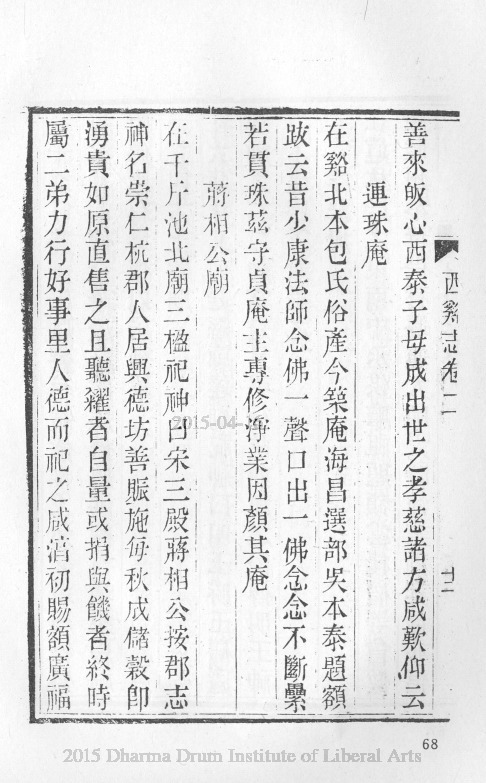 西谿志卷二
十二
善來皈心西泰子母成出世之孝慈諸方咸歎仰云
連珠庵
在谿北本包氏俗產今築庵海昌選部吳本泰題額
跋云昔少康法師念佛一聲口出一佛念念不斷纍
若貫珠茲守貞庵主專修淨業因顏其庵
蔣相公廟
在千斤池北廟三楹祀神曰宋三殿蔣相公按郡志
神名崇仁杭郡人居興德坊善賑施每秋成儲穀卽
湧貴如原直售之且聽糴者自量或捐與饑者終時
屬二弟力行好事里人德而祀之咸淳初賜額廣福
68
2015-04-
2015 Dharma Drum Institute of Liberal Arts